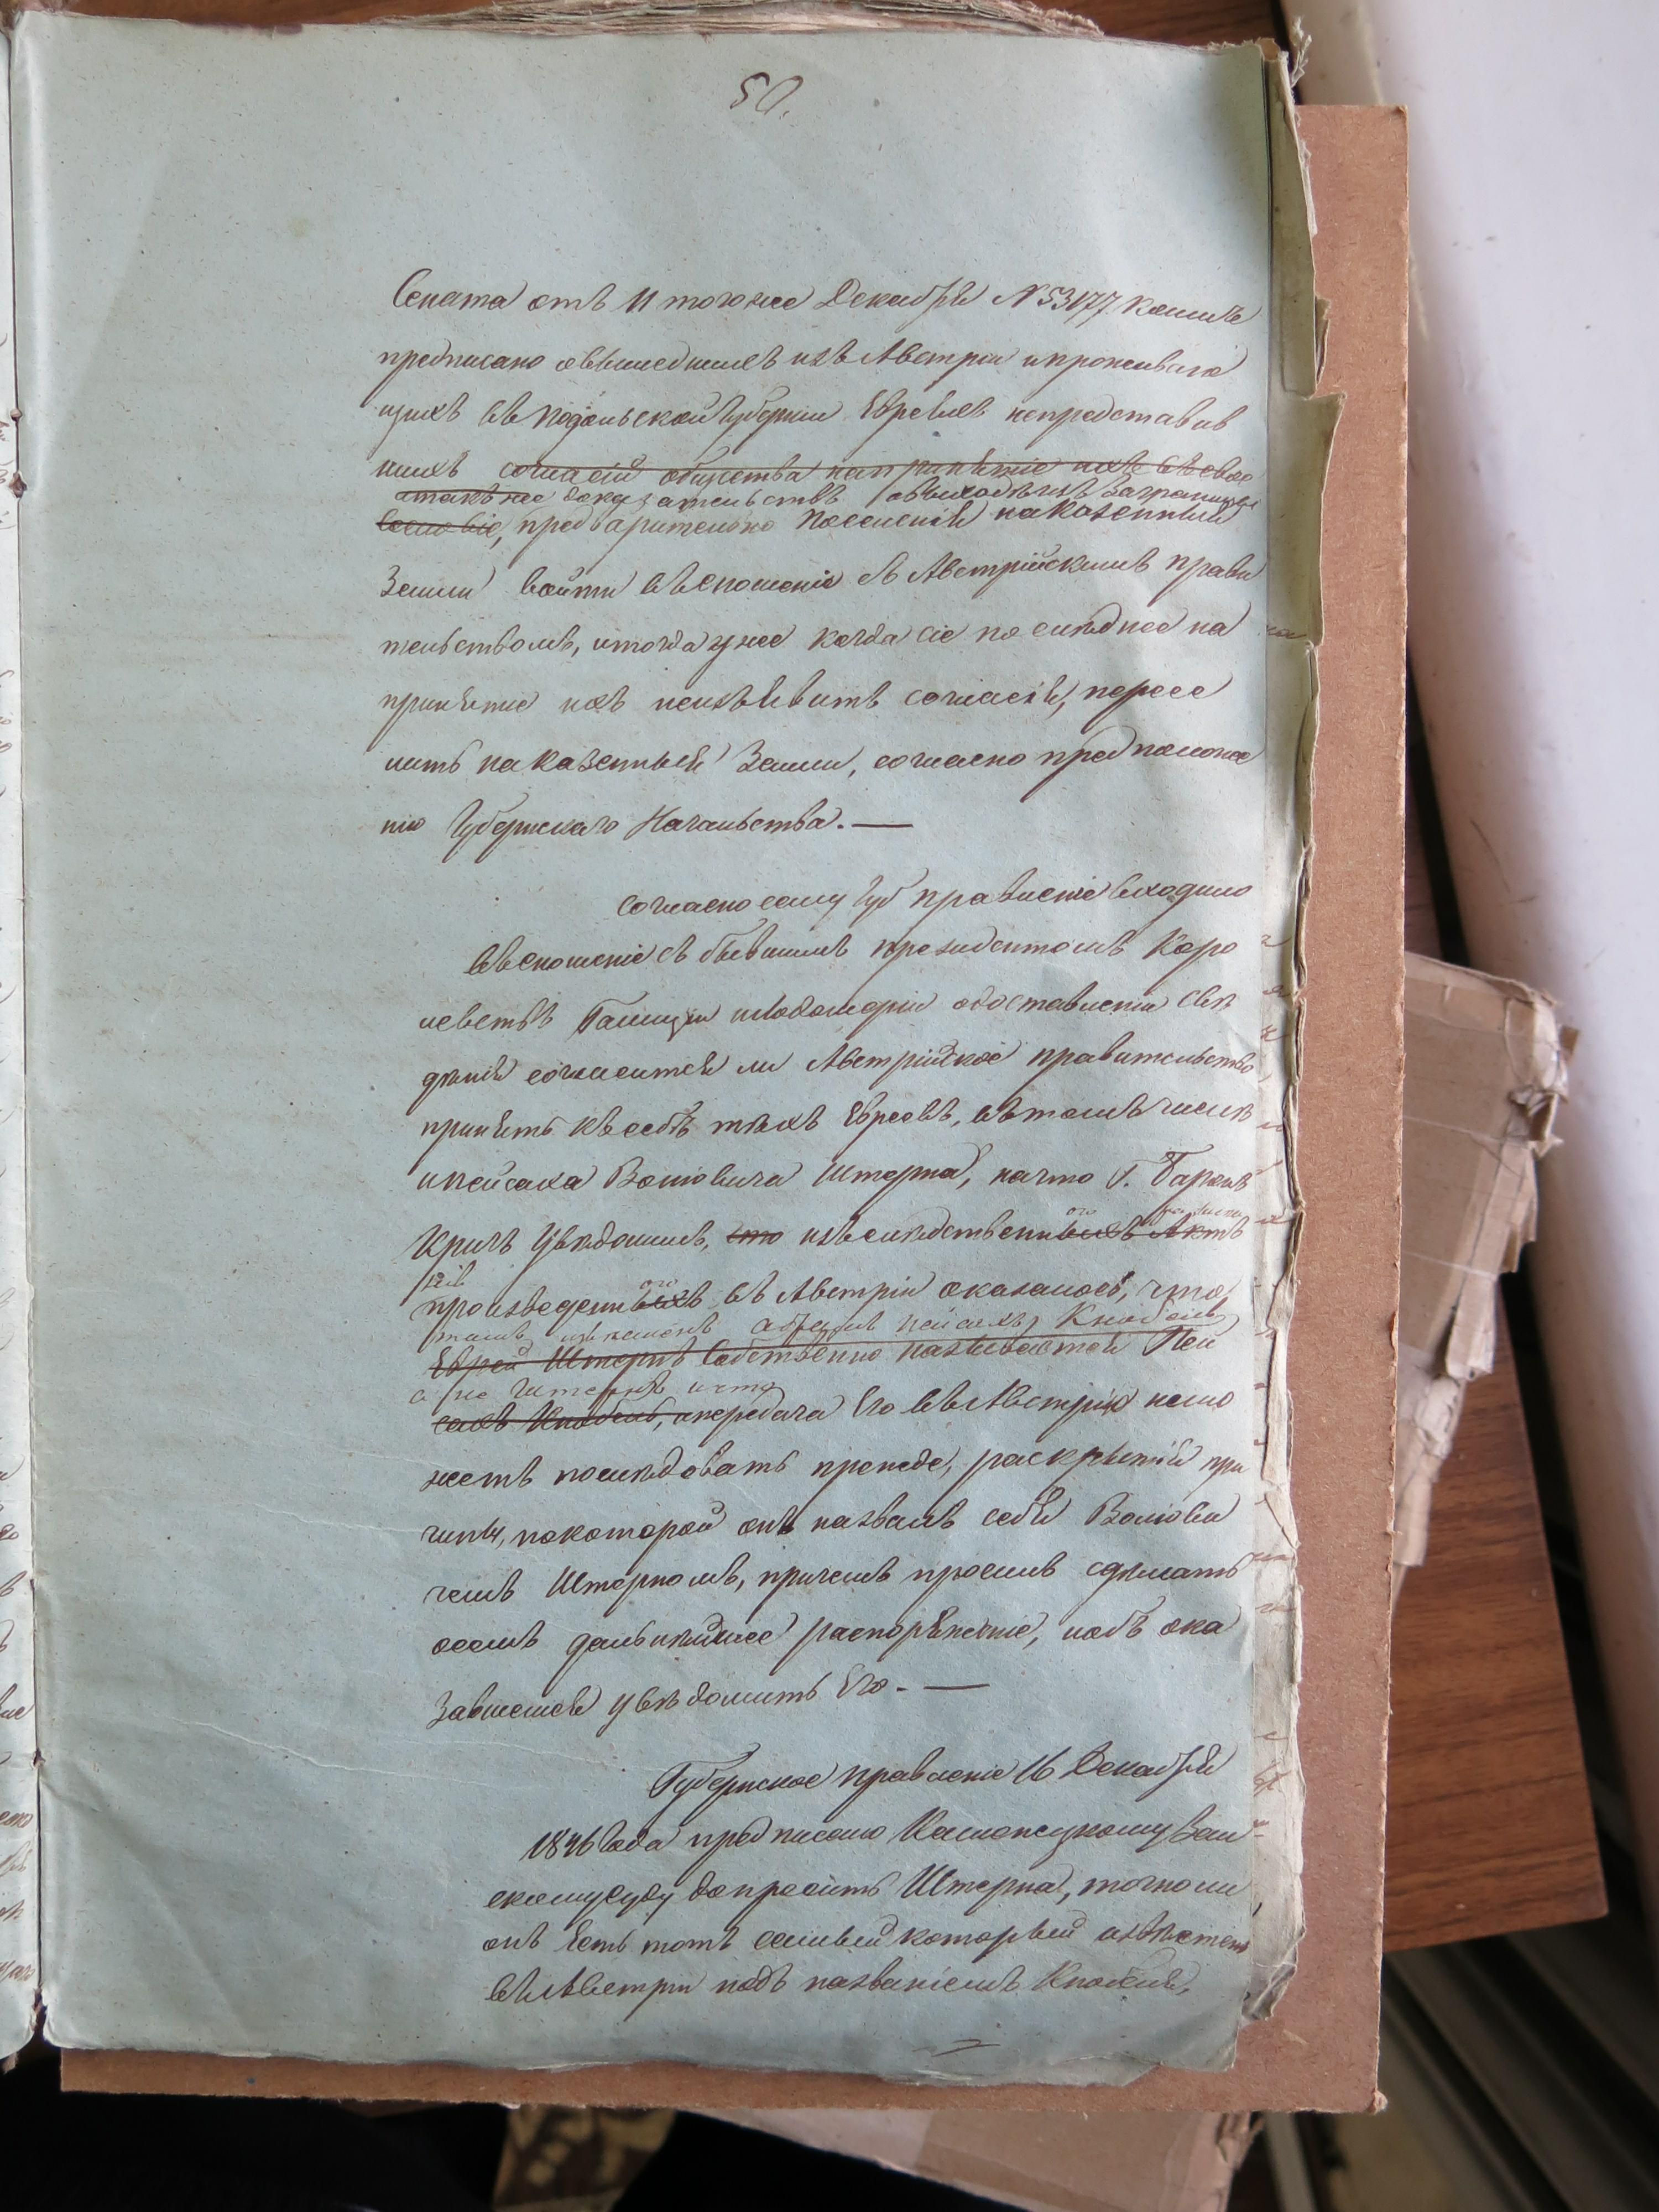 50.
Сената отъ 11 тогоже Декабря № 53177. коимъ
предписано овышедшихъ изъ Австріи ипроживаю
щихъ въ Подольской Губерніи Евреяхъ непредставив
шихъ согласій общества напринятіе ихъ въ свое
атакъ же доказательствъ овыходѣ изъ Заграницы
сословіе, предварительно Поселенія наказенный
Земли войти въ сношеніе съ Австрійскимъ прави
тельствомъ, итогда уже когда сіе последнее на
принятіе ихъ неизъявитъ согласія, пересе
лить на казенныя Земли, согласно предположе
нію Губернскаго Начальства. —
Согласно сему Губ правленіе входило
въ сношеніе съ бывшимъ президентомъ Коро
левствъ Галиціи илодомеріи одоставленіи свѣ
дѣнія согласится ли Австрійское правительство
принять къ себѣ тѣхъ Евреевъ, въ томъ числѣ
ипейсаха Волковича Штерна, начто Г. Баронъ
Кригъ увѣдомилъ, что изъ слѣдственныхъ Актъ
ого
произведенныхъ въ Австріи оказалось, что
ого
тамъ извѣстенъ Пейсахъ Кнобель
Еврей Штернъ собственно называется Пей
а не Штернъ ичто
сахъ Кнобель, ипередача Его въ Австрію немо
жетъ послѣдовать прежде, раскрытія при
чины, покоторой онъ назвалъ себя Волкови
чемъ Штерномъ, причемъ просилъ сдѣлать
осемъ дальнѣйшее распоряженіе, иобъ ока
завшемся увѣдомить Его. —
Губернское правленіе 16 Декабря
1846 Года предписало Каменецкому Зем-
скому Суду допросить Штерна, точноли
онъ Есть тотъ самый который извѣстенъ
въ Австріи подъ названіемъ Кнобеля,